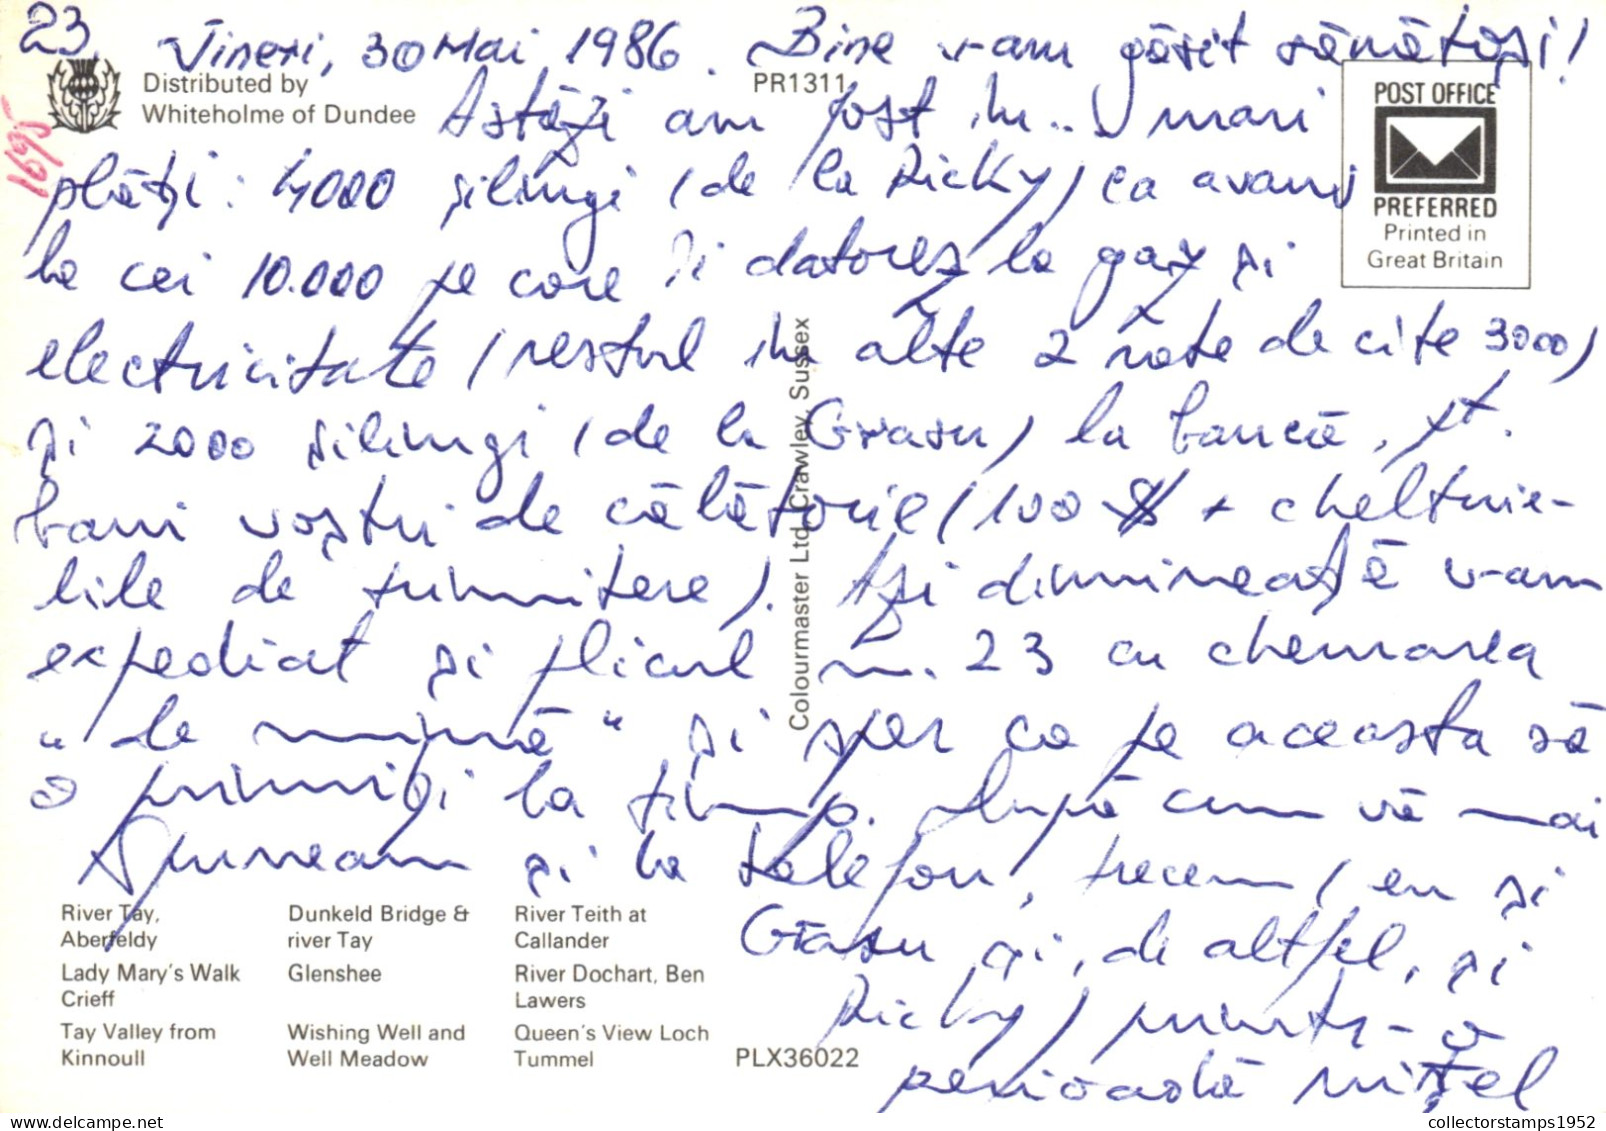 23. Vineri, 30 Mai, 1986. Bine v-am găsit sănătoși!
Distributed by
Whiteholme of Dundee
PR1311
POST OFFICE
PREFERRED
Printed in
Great Britain
1695
Astăzi am fost în.. mari
plăți: 4000 șilingi (de la Ricky) ca avans
la cei 10.000 pe care îi datorez la gaz și
electricitate (restul în alte 2 rate de cîte 3000)
și 2000 șilingi (de la Grasu) la bancă, pt.
banii voștri de călătorie (100 $ + cheltuie-
lile de trimitere). Azi dimineață v-am
expediat și plicul nr. 23 cu chemarea
"de mînă" și sper ca pe aceasta să
o primiți la timp. După cum vă mai
spuneam și la telefon, trecem (eu și
Grasu și, de altfel, și
Ricky) printr-o
perioadă nițel
Colourmaster Ltd. Crawley, Sussex
River Tay,
Aberfeldy
Lady Mary's Walk
Crieff
Tay Valley from
Kinnoull
Dunkeld Bridge &
river Tay
Glenshee
Wishing Well and
Well Meadow
River Teith at
Callander
River Dochart, Ben
Lawers
Queen's View Loch
Tummel
PLX36022
collectorstamps1952